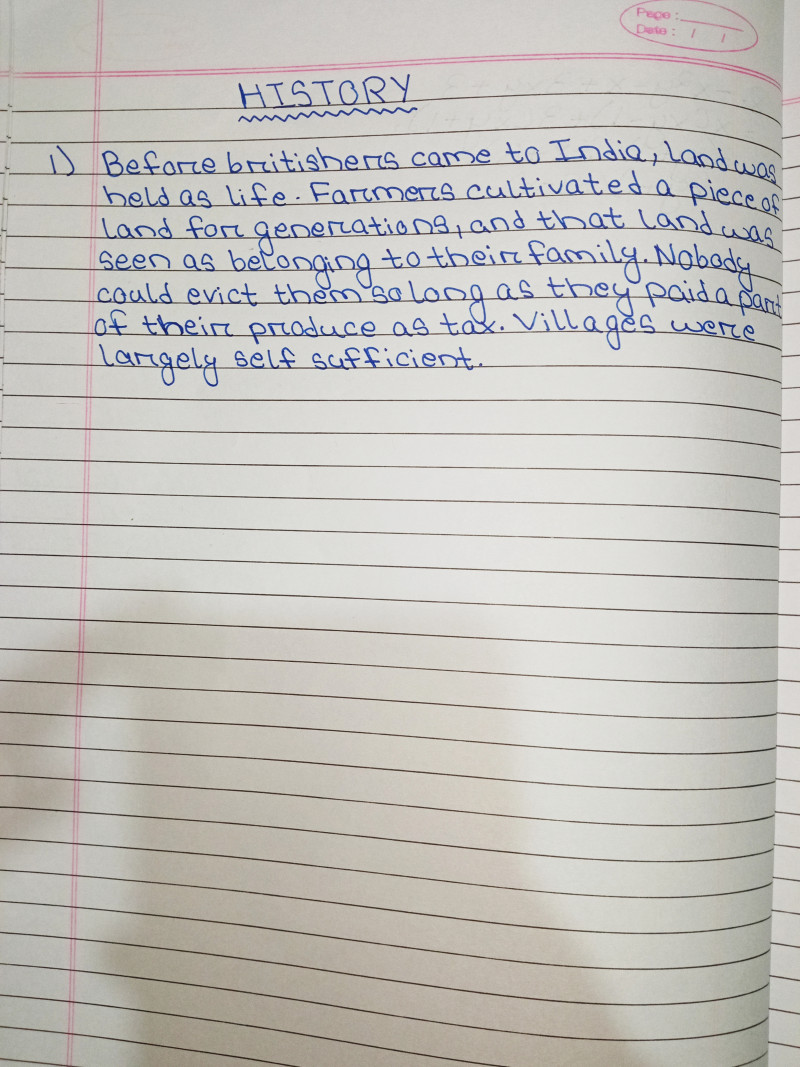 Page:
Date: / /
HISTORY
1) Before britishers came to India, land was
held as life. Farmers cultivated a piece of
land for generations, and that land was
seen as belonging to their family. Nobody
could evict them so long as they paid a part
of their produce as tax. Villages were
largely self sufficient.